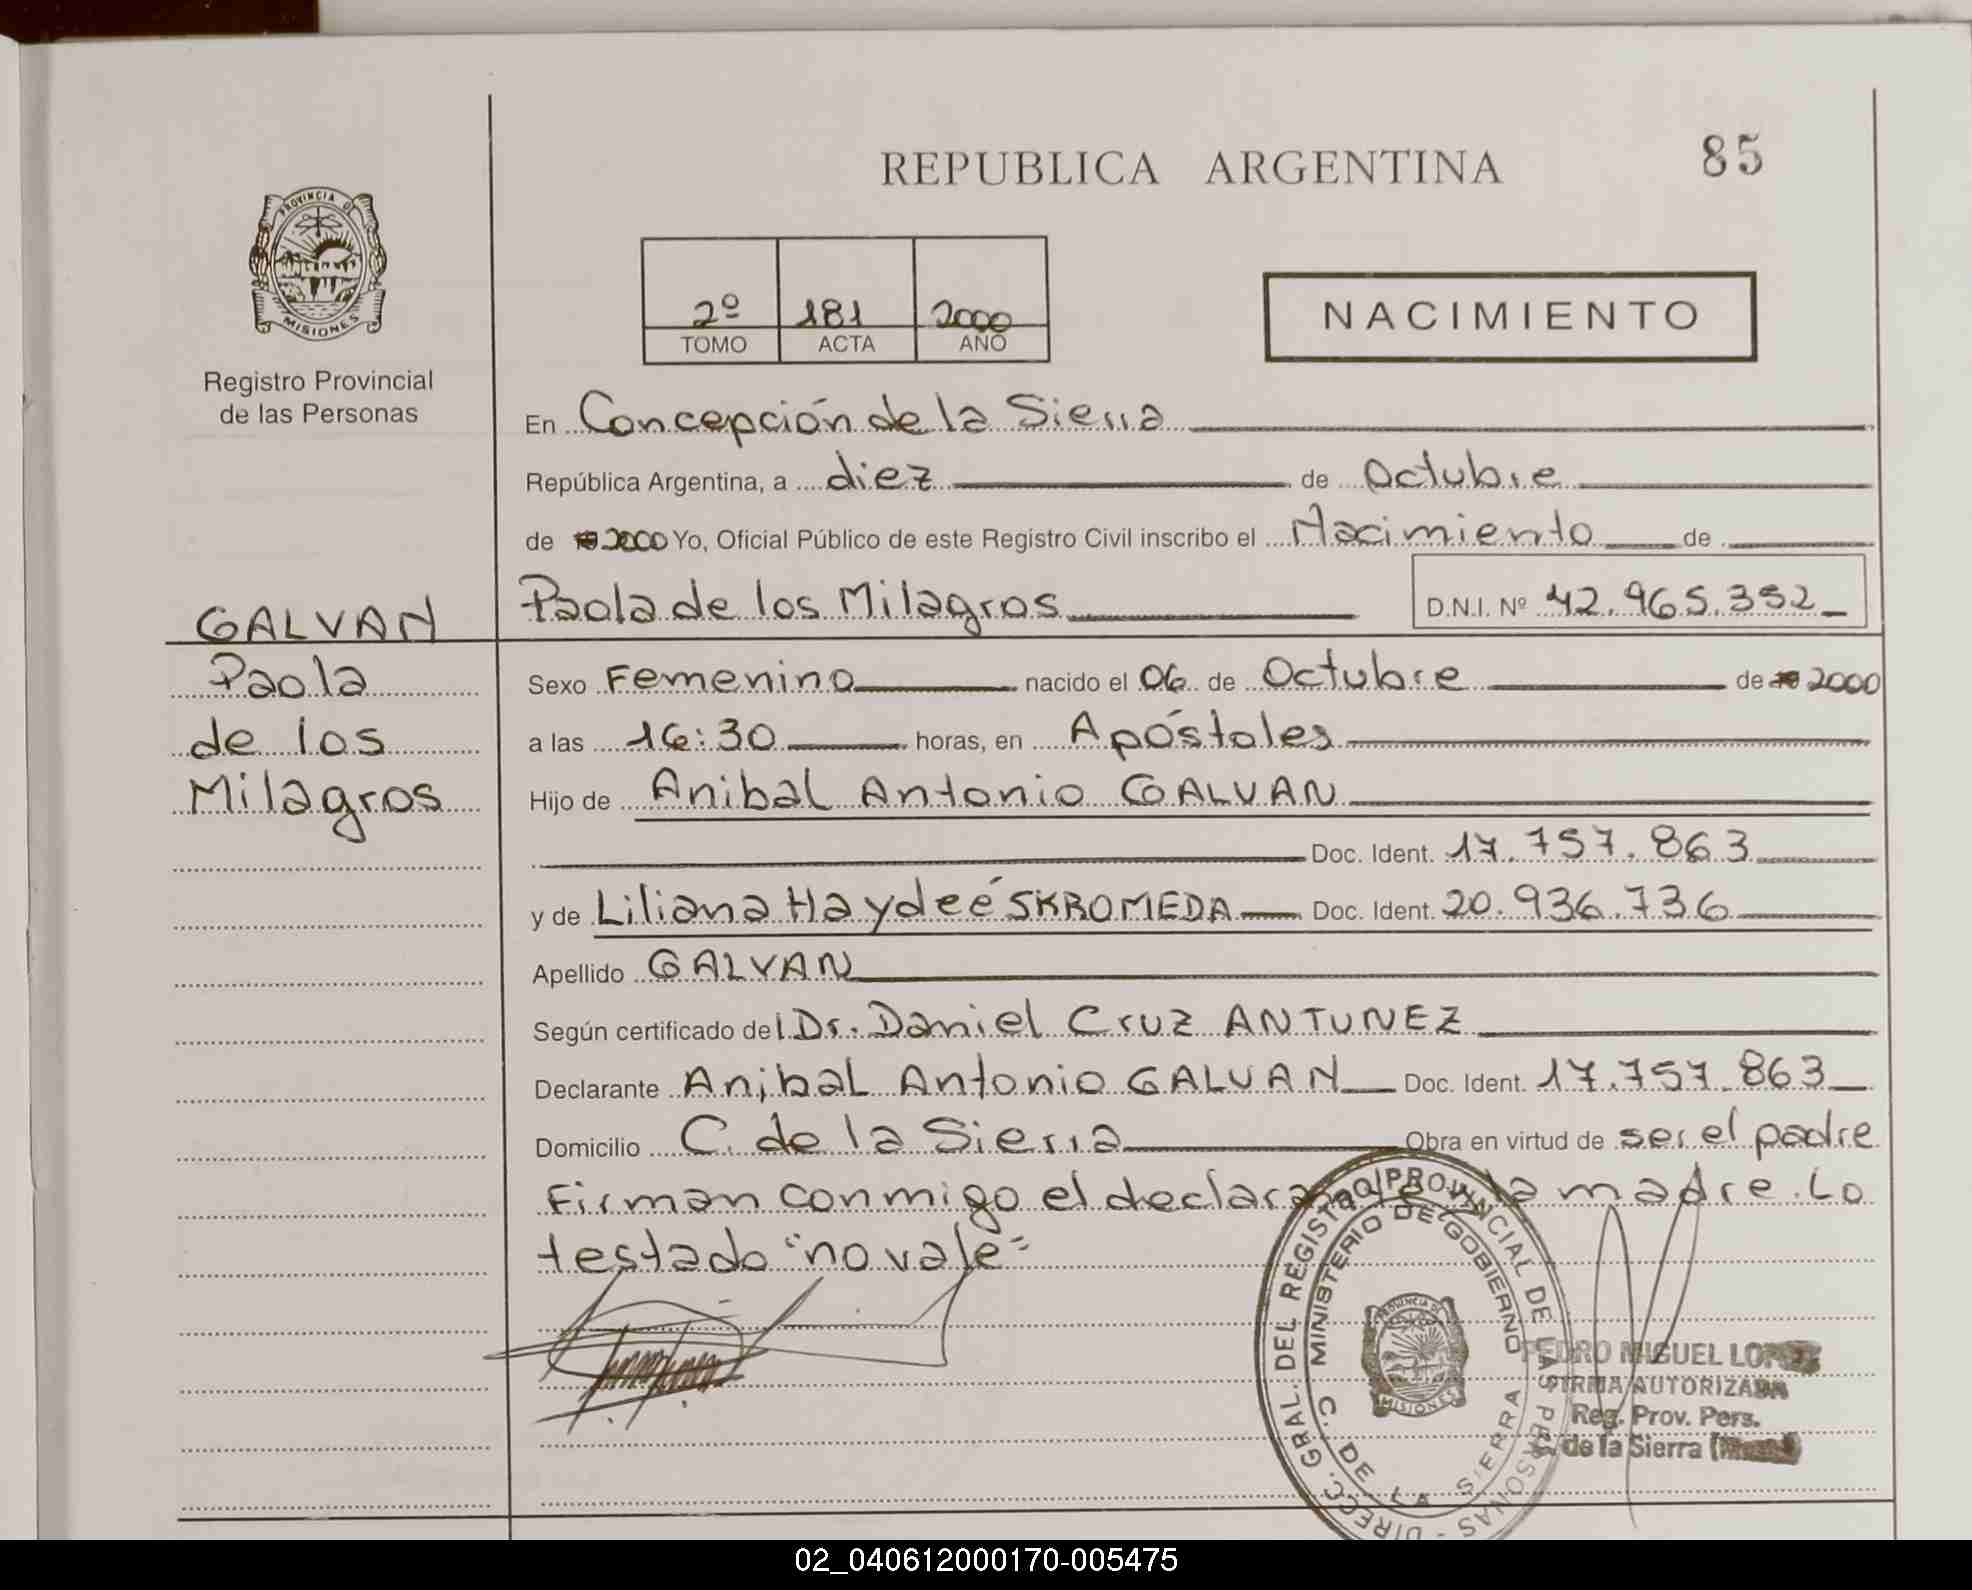 85
REPUBLICA ARGENTINA
PROVINCIA DE
MISIONES
Registro Provincial
de las Personas
2º 181 2000
TOMO ACTA AÑO
NACIMIENTO
En Concepción de la Sierra
República Argentina, a diez de Octubre
de 2000 Yo, Oficial Público de este Registro Civil inscribo el Nacimiento de
Paola de los Milagros D.N.I. Nº 42.965.352
GALVAN
Paola
de los
Milagros
Sexo Femenino nacido el 06 de Octubre de 2000
a las 16:30 horas, en Apóstoles
Hijo de Anibal Antonio GALVAN
Doc. Ident. 17.757.863
y de Liliana Haydeé SKROMEDA Doc. Ident. 20.936.736
Apellido GALVAN
Según certificado del Dr. Daniel Cruz ANTUNEZ
Declarante Anibal Antonio GALVAN Doc. Ident. 17.757.863
Domicilio C. de la Sierra Obra en virtud de ser el padre
Firman conmigo el declarante y la madre. Lo
testado "no vale"
DIRECC. GRAL. DEL REGISTRO PROVINCIAL DE LAS PERSONAS -
MINISTERIO DE GOBIERNO
C. DE LA SIERRA
PROVINCIA DE
MISIONES
PEDRO MIGUEL LOPEZ
FIRMA AUTORIZADA
Reg. Prov. Pers.
de la Sierra
02_040612000170-005475